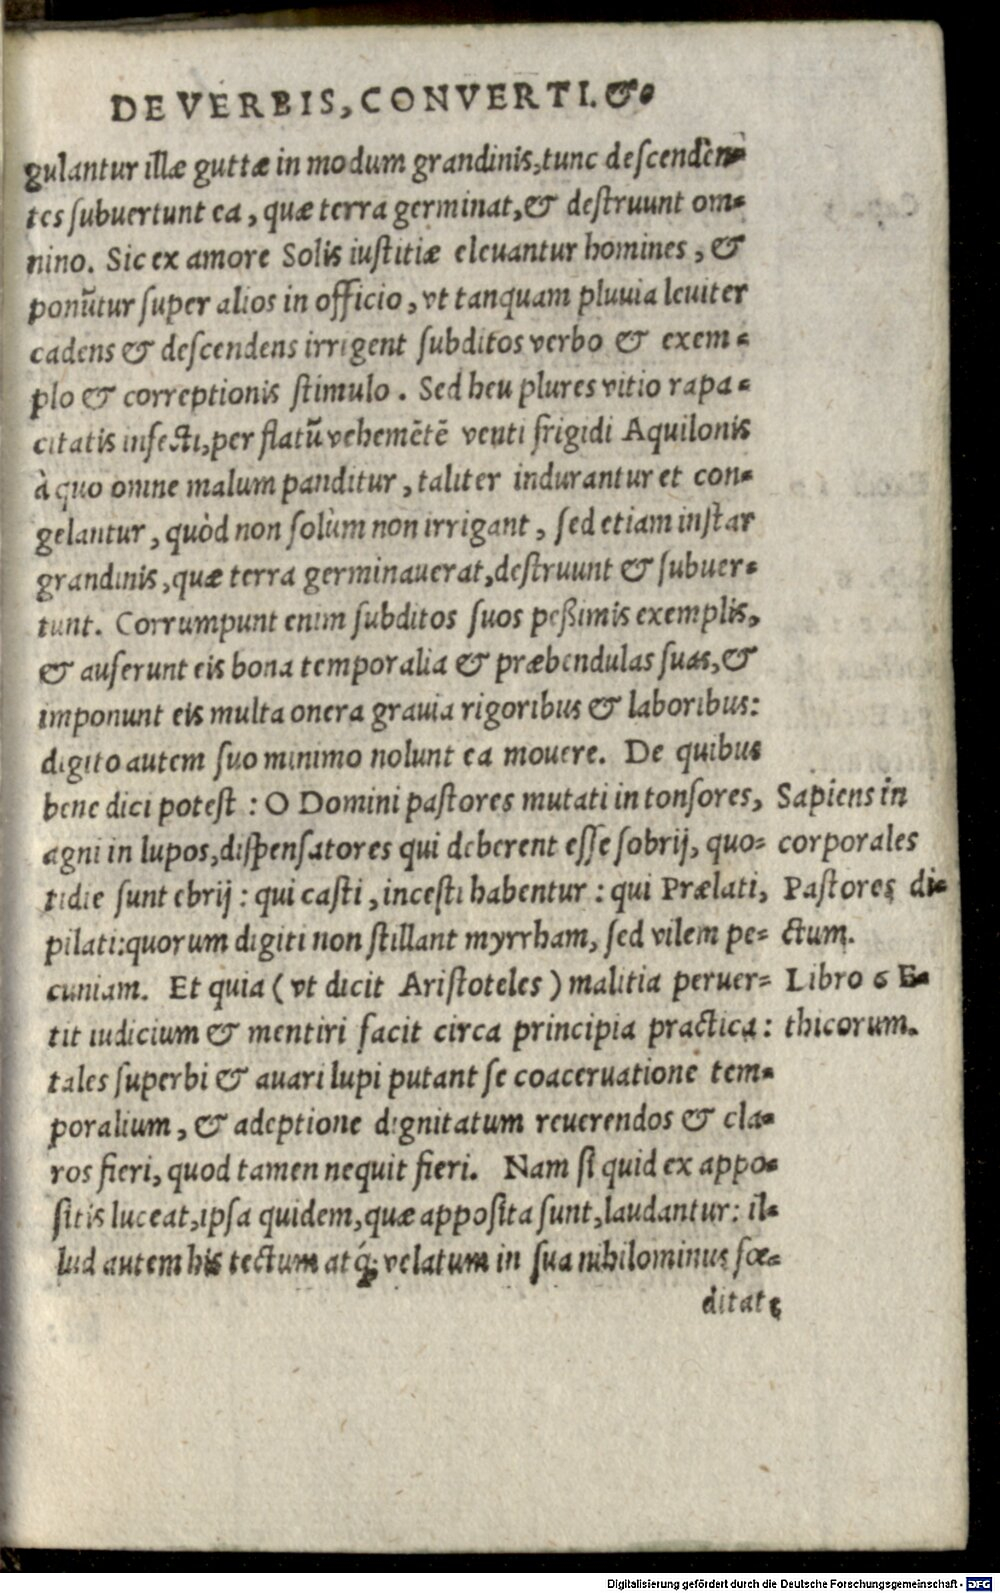 DE VERBIS, CONVERTI. &.
gulantur illæ guttæ in modum grandinis, tunc descenden-
tes subuertunt ea, quæ terra germinat, & destruunt om-
nino. Sic ex amore Solis iustitiæ eleuantur homines, &
ponūtur super alios in officio, vt tanquam pluuia leuiter
cadens & descendens irrigent subditos verbo & exem-
plo & correptionis stimulo. Sed heu plures vitio rapa-
citatis infecti, per flatū vehemētē venti frigidi Aquilonis
à quo omne malum panditur, taliter indurantur et con-
gelantur, quòd non solùm non irrigant, sed etiam instar
grandinis, quæ terra germinauerat, destruunt & subuer-
tunt. Corrumpunt enim subditos suos peßimis exemplis,
& auferunt eis bona temporalia & præbendulas suas, &
imponunt eis multa onera grauia rigoribus & laboribus:
digito autem suo minimo nolunt ea mouere. De quibus
bene dici potest: O Domini pastores mutati in tonsores,
agni in lupos, dispensatores qui deberent esse sobrij, quo-
tidie sunt ebrij: qui casti, incesti habentur: qui Prælati,
pilati: quorum digiti non stillant myrrham, sed vilem pe-
cuniam. Et quia (vt dicit Aristoteles) malitia peruer-
tit iudicium & mentiri facit circa principia practica:
tales superbi & auari lupi putant se coaceruatione tem-
poralium, & adeptione dignitatum reuerendos & cla-
ros fieri, quod tamen nequit fieri. Nam si quid ex appo-
sitis luceat, ipsa quidem, quæ apposita sunt, laudantur: il-
lud autem his tectum atq́; velatum in sua nihilominus fœ-
ditate
Sapiens in
corporales
Pastores di-
ctum.
Libro 6 E-
thicorum.
Digitalisierung gefördert durch die Deutsche Forschungsgemeinschaft - DFG